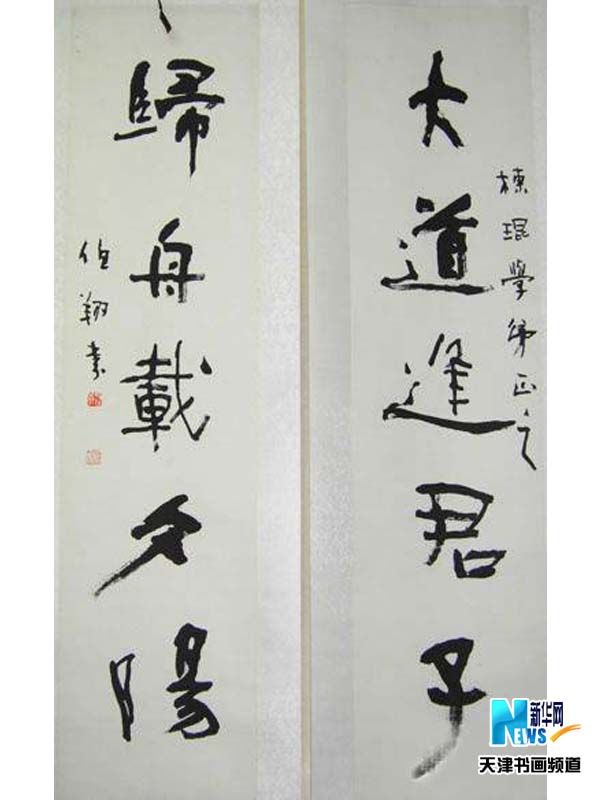 棟琨學弟正之
大道逢君子
歸舟載夕陽
伯翔書
新华网
NEWS
天津书画频道